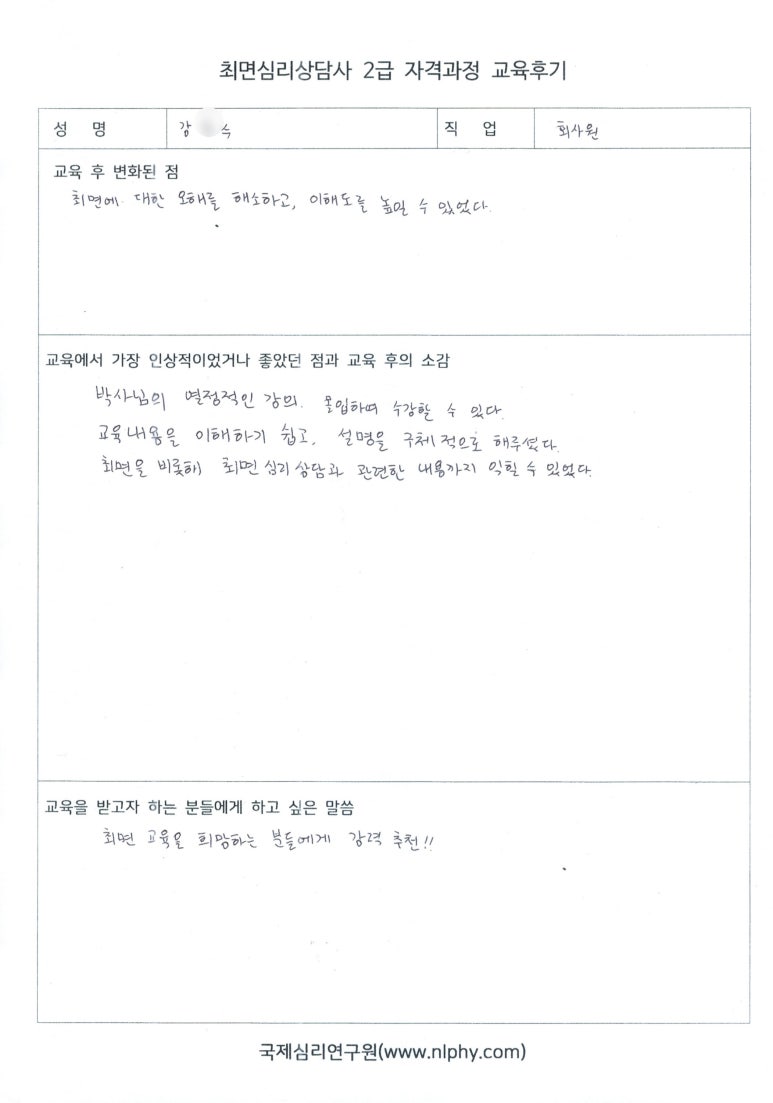 최면심리상담사 2급 자격과정 교육후기
성 명 강 수 직 업 회사원
교육 후 변화된 점
최면에 대한 오해를 해소하고, 이해도를 높일 수 있었다.
교육에서 가장 인상적이었거나 좋았던 점과 교육 후의 소감
박사님의 열정적인 강의. 몰입하며 수강할 수 있다.
교육내용을 이해하기 쉽고, 설명을 구체적으로 해주셨다.
최면을 비롯해 최면심리상담과 관련한 내용까지 익힐 수 있었다.
교육을 받고자 하는 분들에게 하고 싶은 말씀
최면 교육을 희망하는 분들에게 강력 추천!!
국제심리연구원(www.nlphy.com)